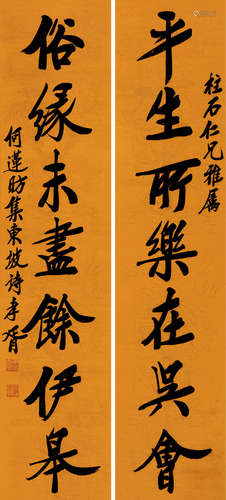 柱石仁兄雅屬
平生所樂在吳會
俗緣未盡餘伊皋
何蓮昉集東坡詩李